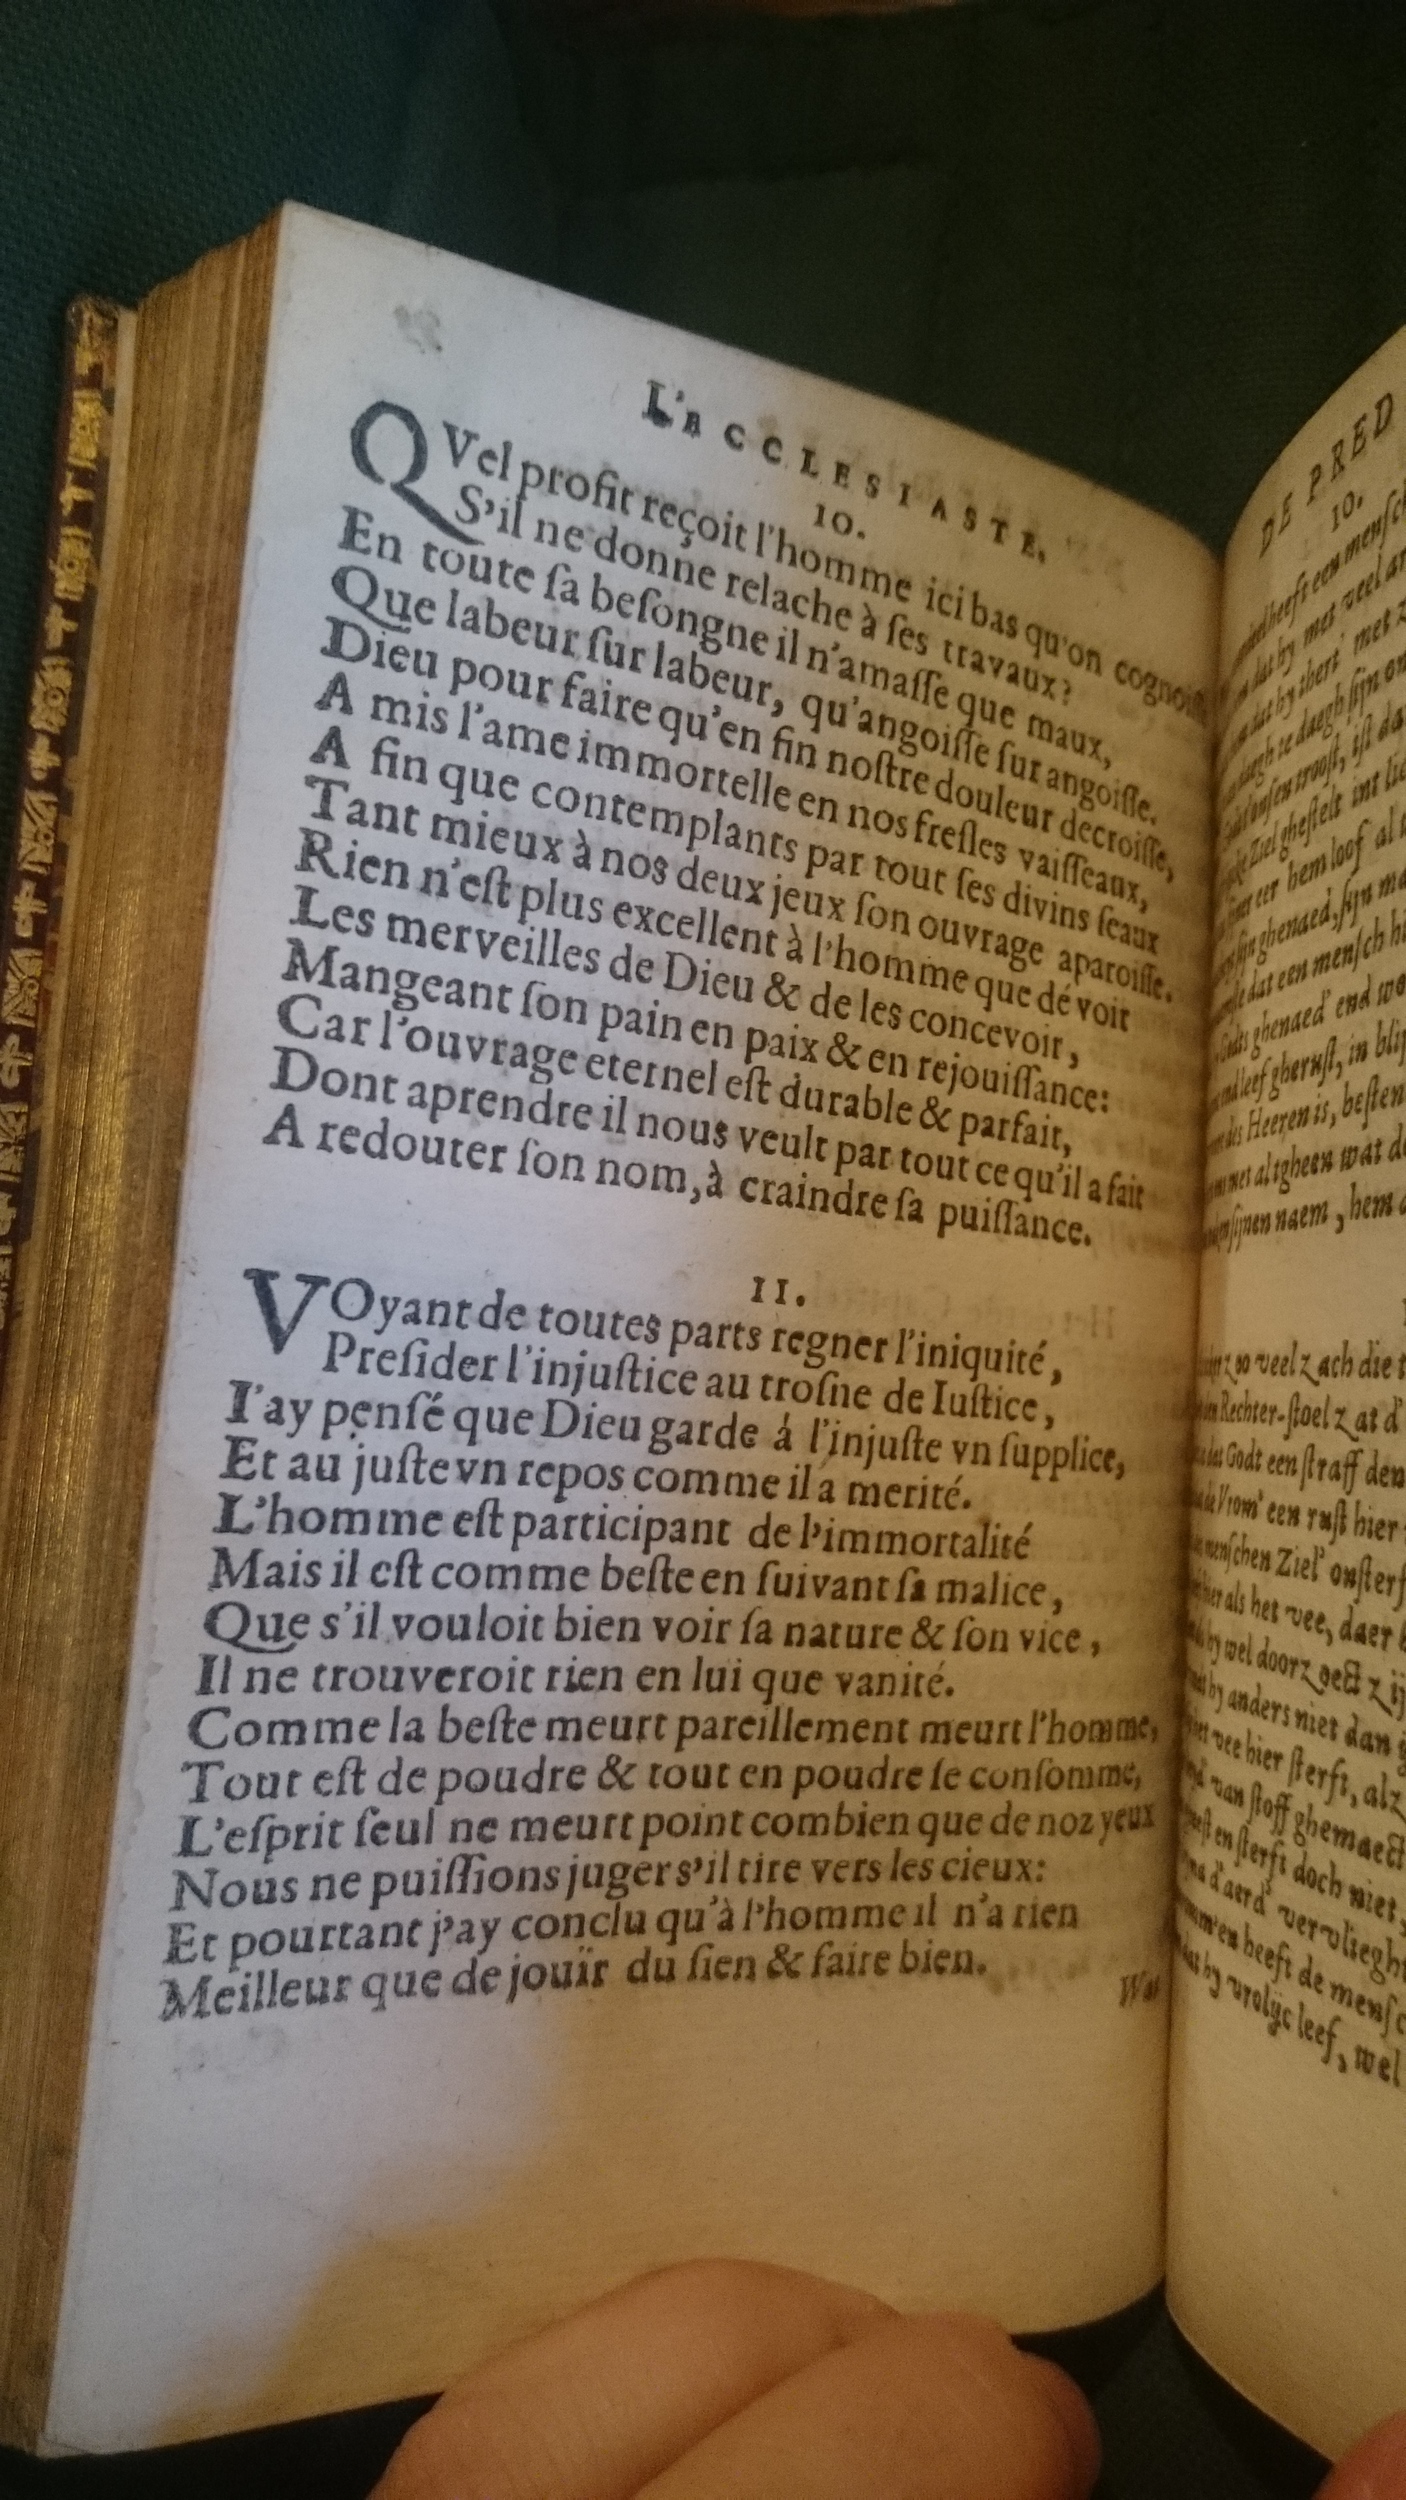 L'ECCLESIASTE.
10.
QVel profit reçoit l'homme ici bas qu'on
S'il ne donne relache à ſes travaux?
En toute ſa beſongne il n'amaſſe que maux,
Que labeur ſur labeur, qu'angoiſſe ſur angoiſſe.
Dieu pour faire qu'en fin noſtre douleur decroiſſe,
A mis l'ame immortelle en nos freſles vaiſſeaux,
A fin que contemplants par tout ſes divins ſeaux
Tant mieux à nos deux jeux ſon ouvrage aparoiſſe.
Rien n'eſt plus excellent à l'homme que dé voir
Les merveilles de Dieu & de les concevoir,
Mangeant ſon pain en paix & en rejouiſſance:
Car l'ouvrage eternel eſt durable & parfait,
Dont aprendre il nous veult par tout ce qu'il a fait
A redouter ſon nom, à craindre ſa puiſſance.
11.
VOyant de toutes parts regner l'iniquité,
Preſider l'injuſtice au troſne de Iuſtice,
I'ay penſé que Dieu garde á l'injuſte vn ſupplice,
Et au juſte vn repos comme il a merité.
L'homme eſt participant de l'immortalité
Mais il eſt comme beſte en ſuivant ſa malice,
Que s'il vouloit bien voir ſa nature & ſon vice,
Il ne trouveroit rien en lui que vanité.
Comme la beſte meurt pareillement meurt l'homme,
Tout eſt de poudre & tout en poudre ſe conſomme,
L'eſprit ſeul ne meurt point combien que de noz yeux
Nous ne puiſſions juger s'il tire vers les cieux:
Et pourtant j'ay conclu qu'à l'homme il n'a rien
Meilleur que de jouïr du ſien & faire bien.
DE PRED
10.
heeft een
dat hy met veel
dat hy met
te daegh ſijn
onſen trooſt, iſt
Ziel gheſtelt int
eer hem loof al
ghenaed, ſijn
dat een menſch
ghenaed' end
leef gheruſt, in
des Heeren is,
met al tgheen wat
ſijnen naem, hem
zoo veel zach die
Rechter-ſtoel zat d'
Godt een ſtraff den
Vrom' een ruſt hier
menſchen Ziel' onſterf
als het vee, daer
hy wel doorzoeckt
hy anders niet dan
vee hier ſterft, alz
van ſtoff ghemaect
en ſterft doch niet,
d'aerd' vervlieght
heeft de menſc
hy vrolijc leef, wel